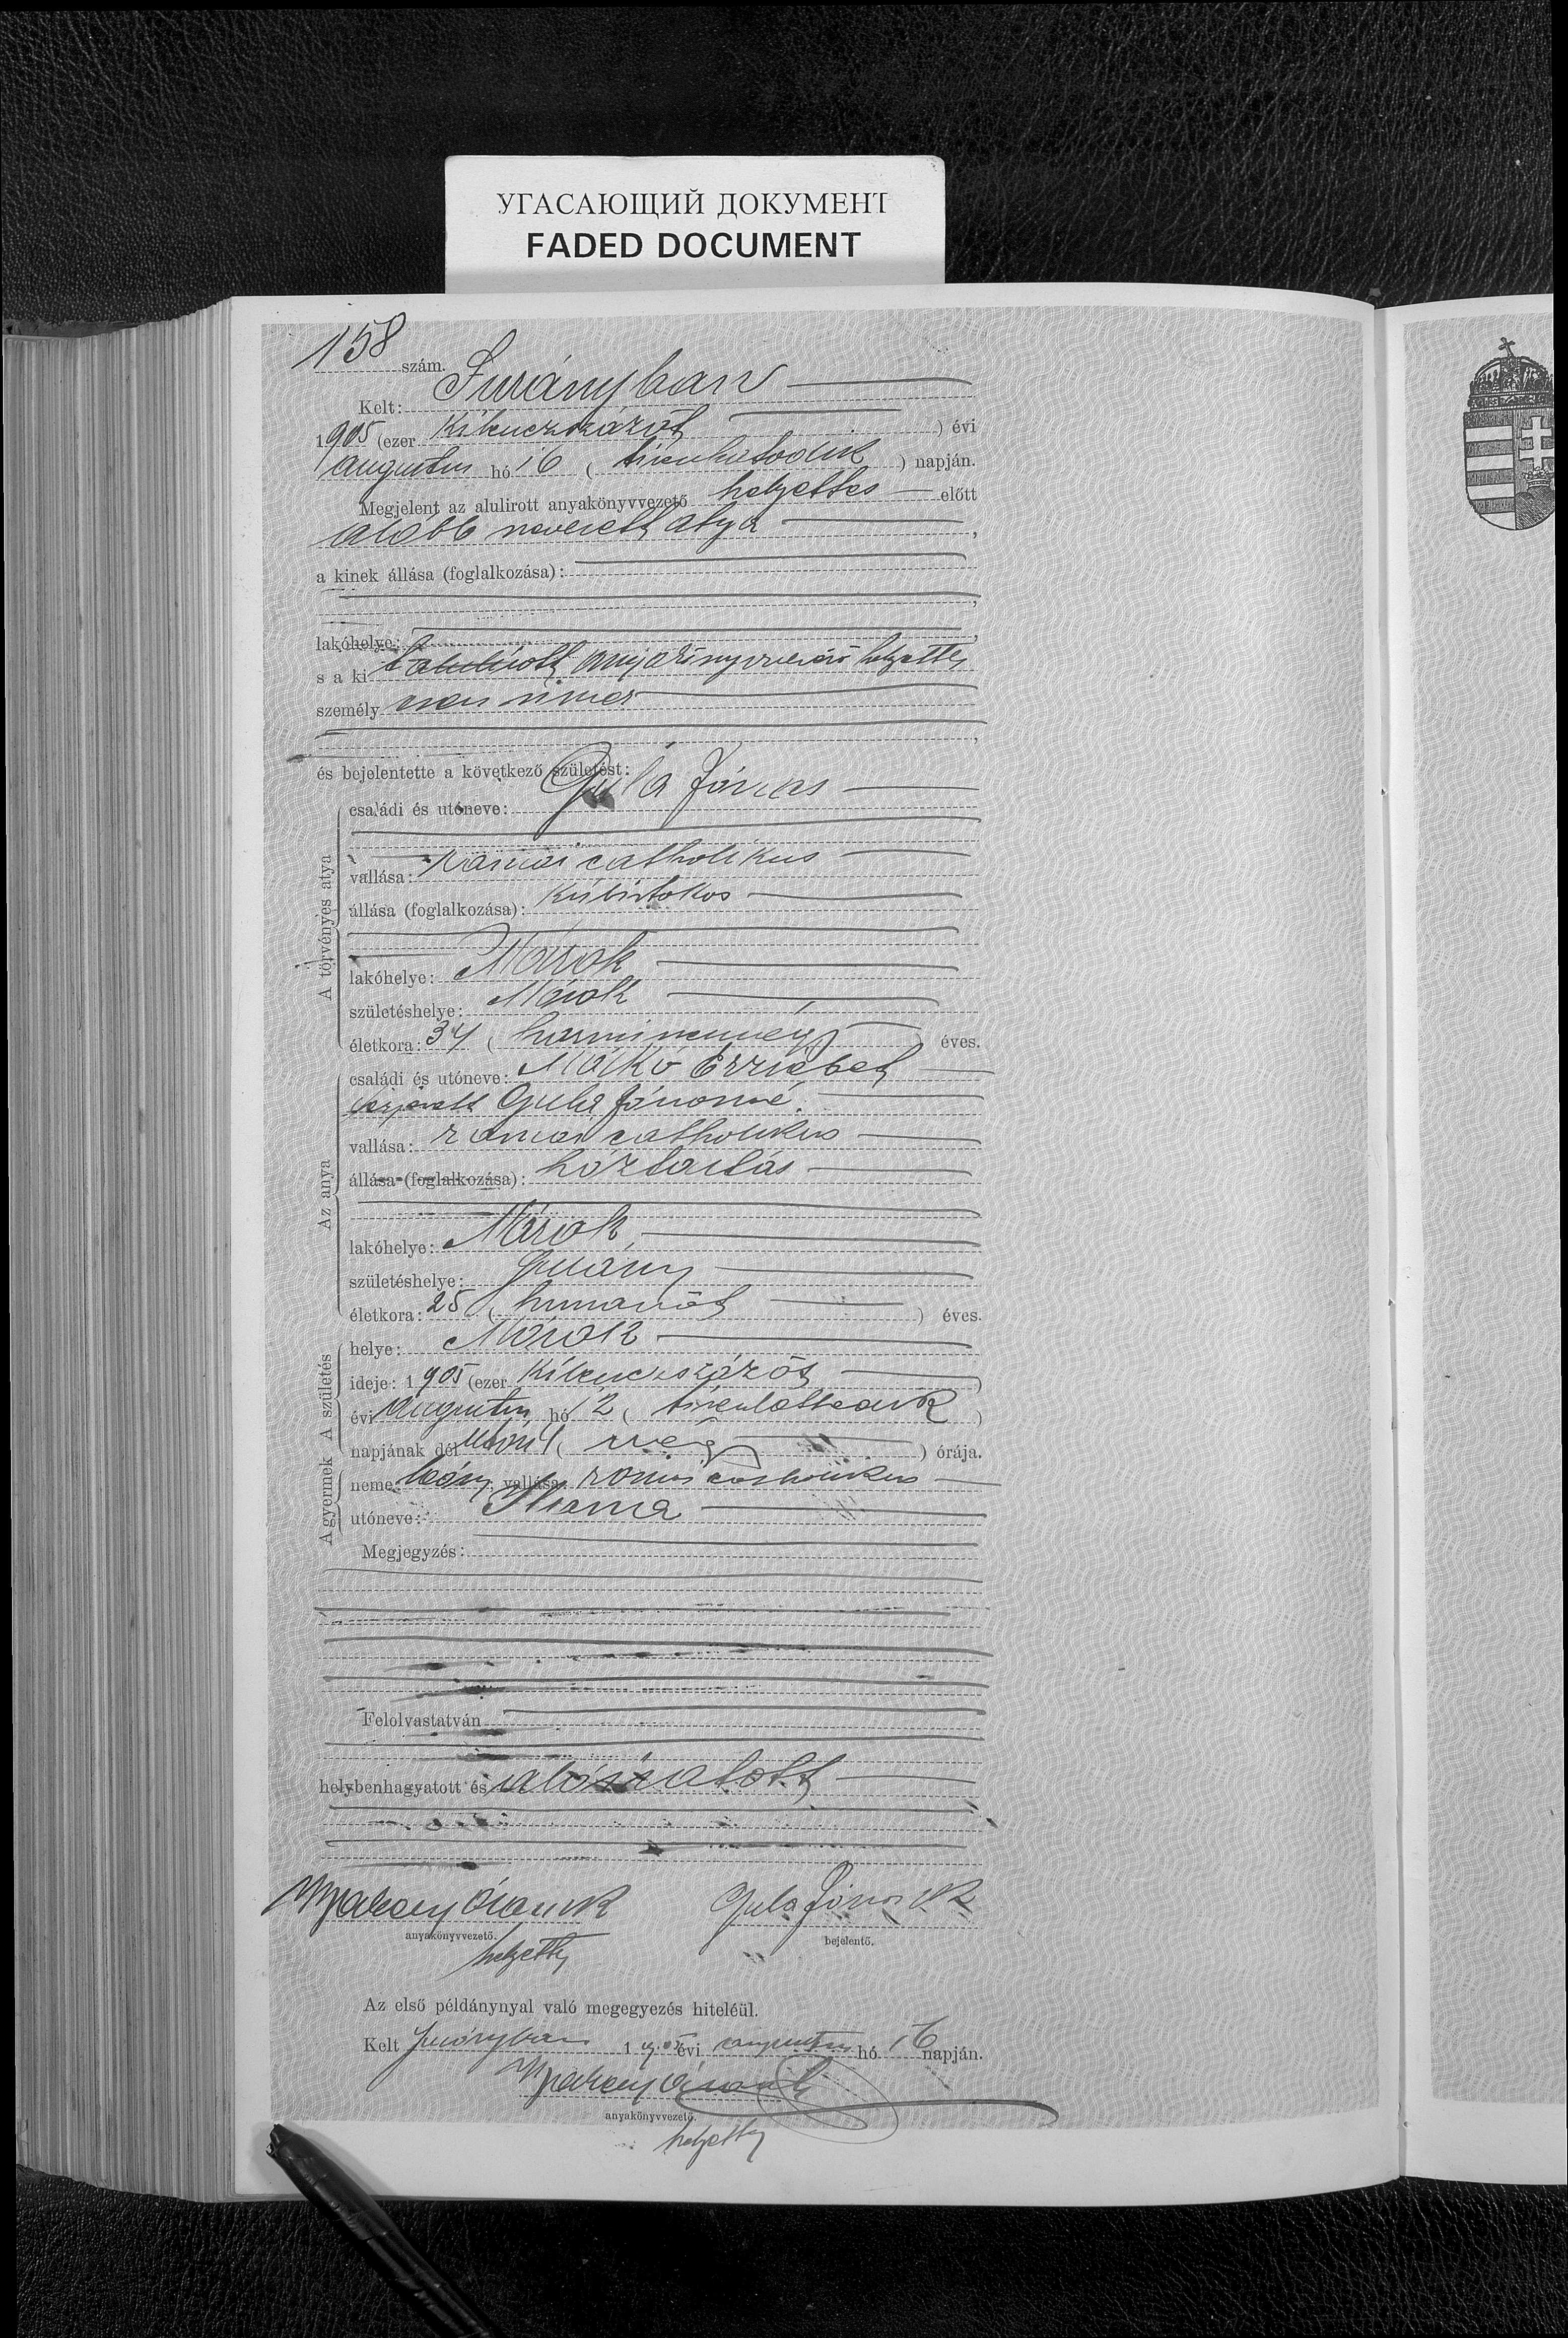 УГАСАЮЩИЙ ДОКУМЕНТ
FADED DOCUMENT
158 szám.
Kelt:
1905 (ezer kilenczszázöt ) évi
augustus hó 16 ( tizenhatodik ) napján.
Megjelent az alulirott anyakönyvvezető helyettes előtt
alább nevezett atya ,
a kinek állása (foglalkozása):
lakóhelye:
s a ki alulirott anyakönyvvezető helyettes
személyesen ismer
és bejelentette a következő születést:
A törvényes atya
családi és utóneve: Gula János
vallása: római catholikus
állása (foglalkozása): kisbirtokos
lakóhelye: Márok
születéshelye: Márok
életkora: 34 ( harmincznégy ) éves.
Az anya
családi és utóneve: Erzsébet
férjezett Gula Jánosné
vallása: római catholikus
állása (foglalkozása): háztartás
lakóhelye: Márok
születéshelye:
életkora: 25 ( huszonöt ) éves.
A születés
helye: Márok
ideje: 1905 (ezer kilenczszázöt )
évi augustus hó 12 ( tizenkettedik )
napjának dél ( ) órája.
A gyermek
neme: leány vallása: római catholikus
utóneve:
Megjegyzés:
Felolvastatván
helybenhagyatott és aláiratott
Gula János
anyakönyvvezető. bejelentő.
helyettes
Az első példánynyal való megegyezés hiteléül.
Kelt 1905 évi augustus hó 16 napján.
anyakönyvvezető.
helyettes